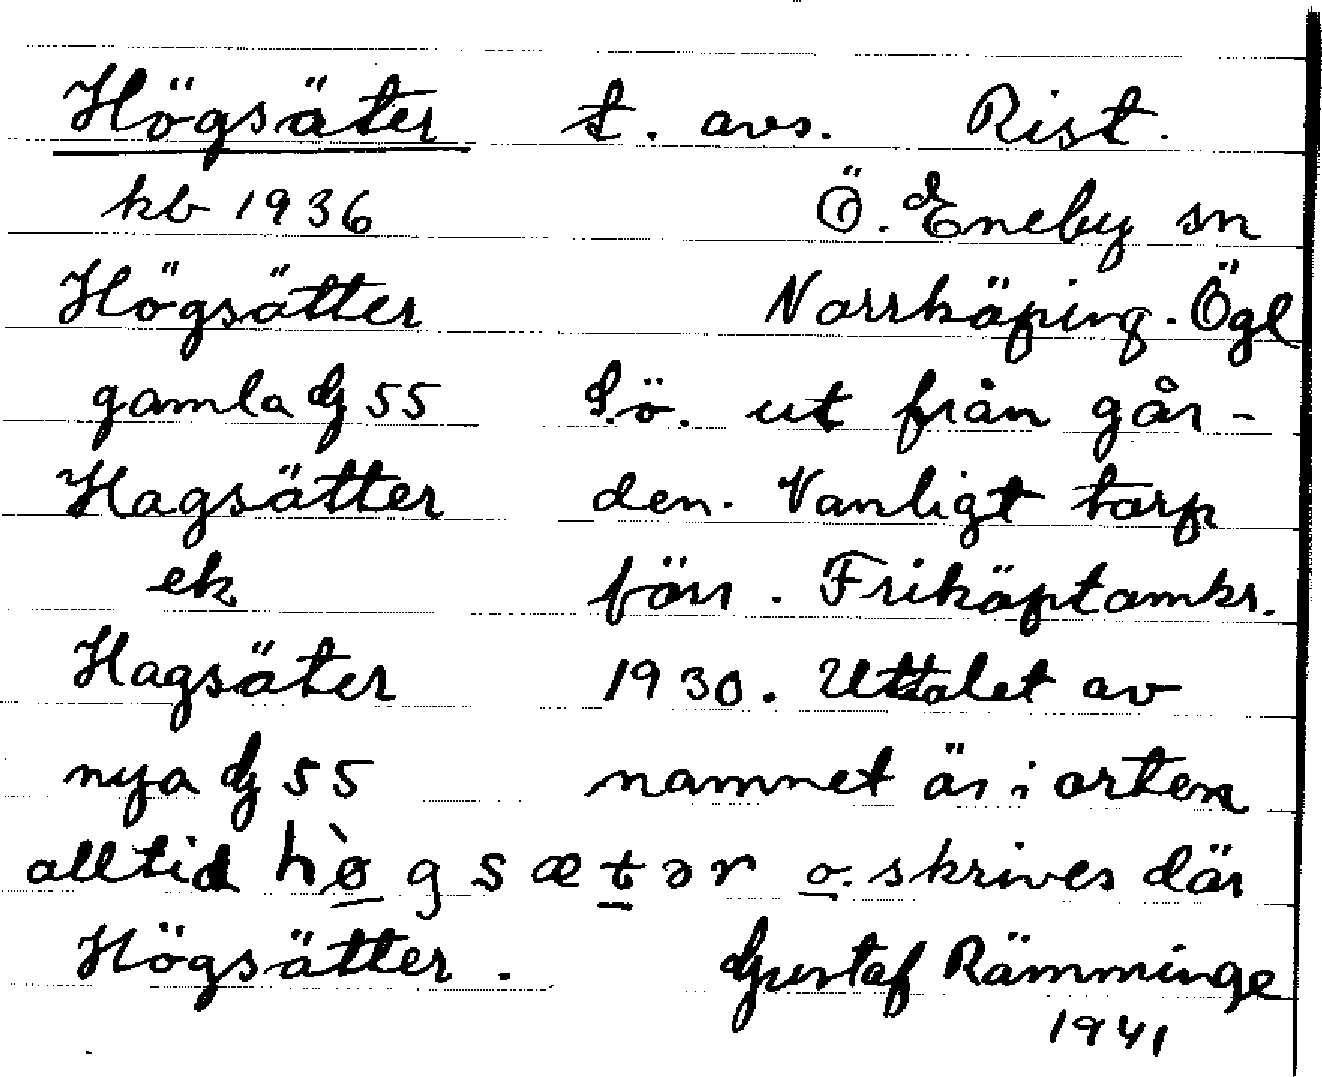 Högsäter t. avs. Rist.
kb 1936 Ö. Eneby sn
Högsätter Norrköping. Ögl
gamla Gj 55 S.ö. ut från går-
Hagsätter den. Vanligt torp
ek förr. Friköpt omkr.
Hagsäter 1930. Uttalet av
nya Gj 55 namnet är i orten
alltid hø̀gsætər o. skrives där
Högsätter. Gustaf Rämminge
1941